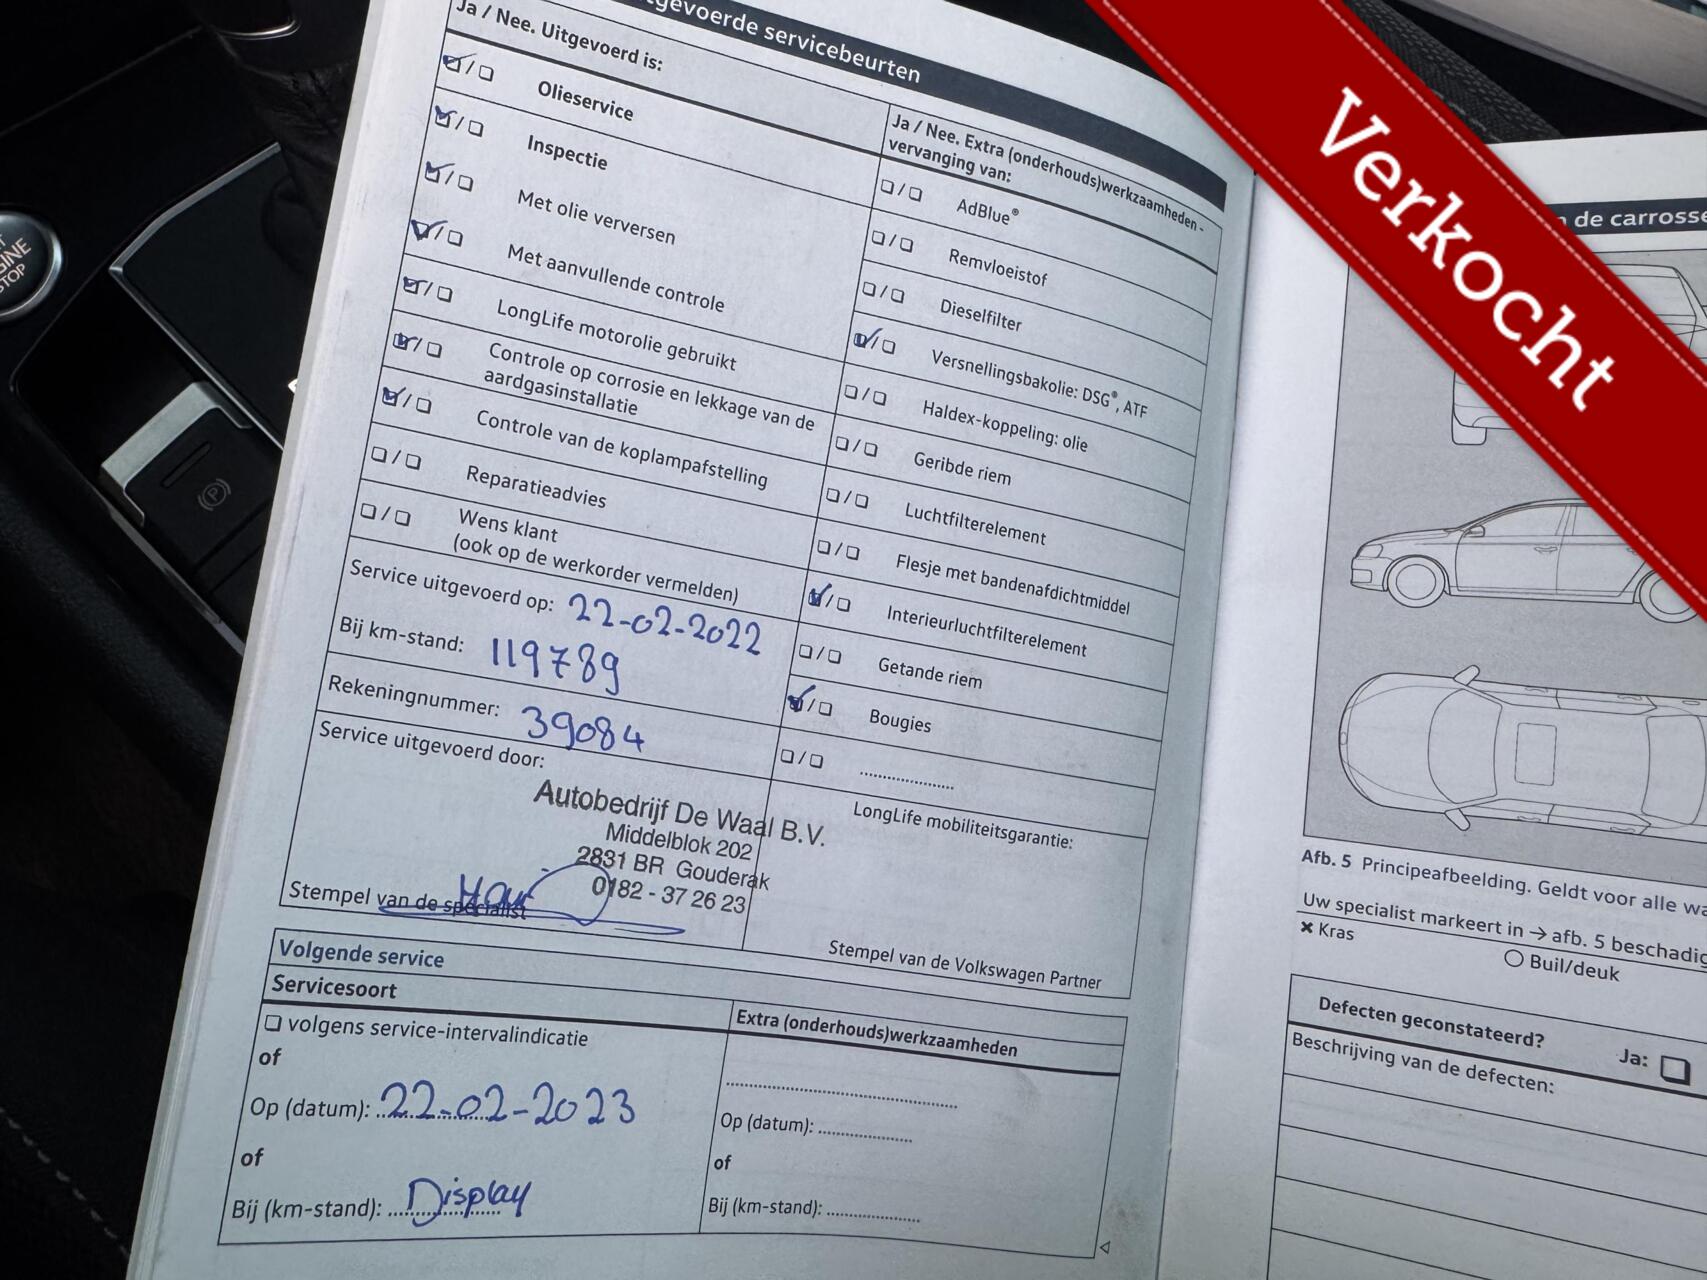 tgevoerde servicebeurten
Ja / Nee. Uitgevoerd is:
Olieservice
Inspectie
Met olie verversen
Met aanvullende controle
LongLife motorolie gebruikt
Controle op corrosie en lekkage van de
aardgasinstallatie
Controle van de koplampafstelling
Reparatieadvies
Wens klant
(ook op de werkorder vermelden)
Service uitgevoerd op: 22-02-2022
Bij km-stand: 119789
Rekeningnummer: 39084
Service uitgevoerd door:
Autobedrijf De Waal B.V.
Middelblok 202
2831 BR Gouderak
0182 - 37 26 23
Stempel van de specialist
Ja / Nee. Extra (onderhouds)werkzaamheden -
vervanging van:
AdBlue®
Remvloeistof
Dieselfilter
Versnellingsbakolie: DSG®, ATF
Haldex-koppeling: olie
Geribde riem
Luchtfilterelement
Flesje met bandenafdichtmiddel
Interieurluchtfilterelement
Getande riem
Bougies
LongLife mobiliteitsgarantie:
Stempel van de Volkswagen Partner
Volgende service
Servicesoort
volgens service-intervalindicatie
of
Op (datum): 22-02-2023
of
Bij (km-stand): Display
Extra (onderhouds)werkzaamheden
Op (datum):
of
Bij (km-stand):
Verkocht
n de carrosse
Afb. 5 Principeafbeelding. Geldt voor alle wa
Uw specialist markeert in → afb. 5 beschadig
× Kras
Buil/deuk
Defecten geconstateerd?
Ja:
Beschrijving van de defecten:
GINE
STOP